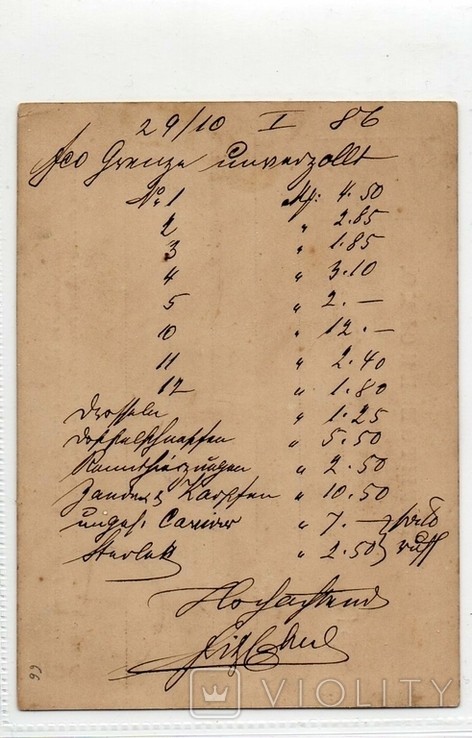 29/10 I 86
fco Grenze unverzollt
No. 1 Mk: 4.50
2 " 2.85
3 " 1.85
4 " 3.10
5 " 2.—
10 " 12.—
11 " 2.40
12 " 1.80
Drosseln " 1.25
Doppelschnepfen " 5.50
Rennthierzungen " 2.50
Zander & Karpfen " 10.50
unges. Caviar " 7.—
Sterlet " 2.50
Hochachtend
66
VIOLITY